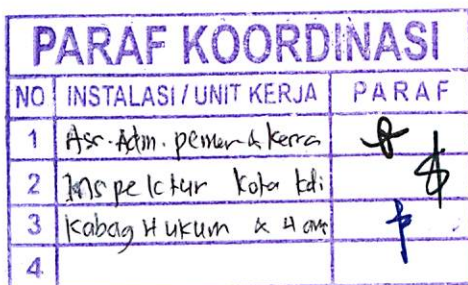 PARAF KOORDINASI
NO INSTALASI / UNIT KERJA PARAF
1 Asr. Adm. pemer & kerra
2 Inspektur Kota kdi
3 Kabag Hukum & Ham
4